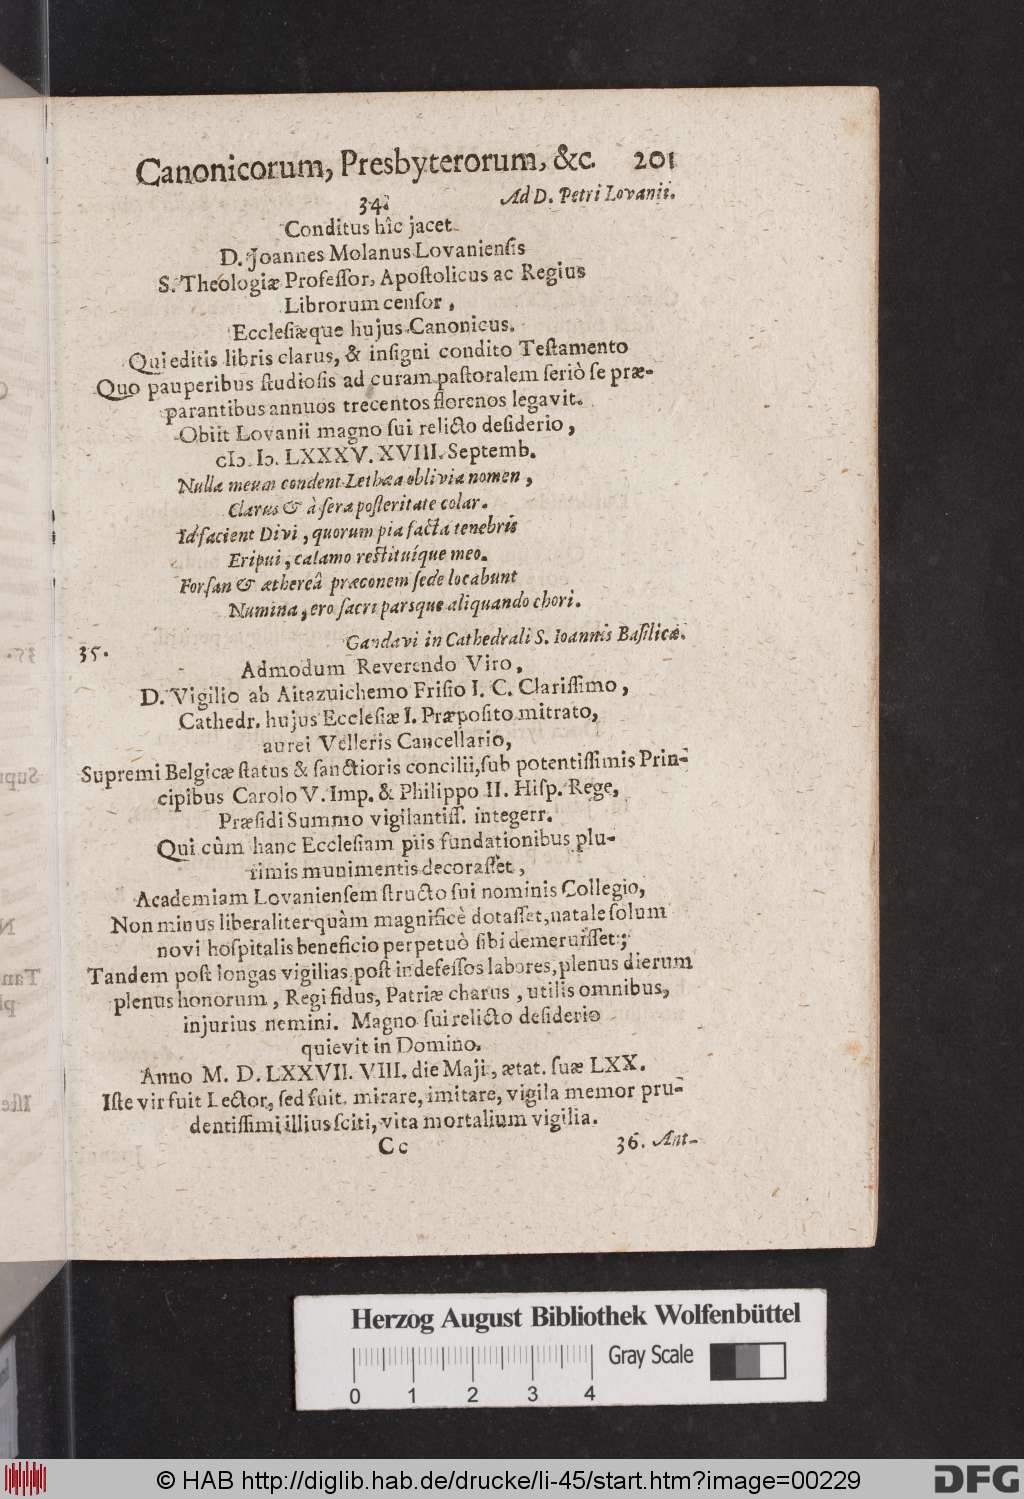 Canonicorum, Presbyterorum, &c. 201
34. Ad D. Petri Lovanii.
Conditus hîc jacet
D. Joannes Molanus Lovaniensis
S. Theologiæ Professor, Apostolicus ac Regius
Librorum censor,
Ecclesiæque hujus Canonicus.
Qui editis libris clarus, & insigni condito Testamento
Quo pauperibus studiosis ad curam pastoralem seriò se præ-
parantibus annuos trecentos florenos legavit.
Obiit Lovanii magno sui relicto desiderio,
cIɔ. Iɔ. LXXXV. XVIII. Septemb.
Nulla meum condent Lethæa oblivia nomen,
Clarus & à sera posteritate colar.
Id facient Divi, quorum pia facta tenebris
Eripui, calamo restituíque meo.
Forsan & æthereâ præconem sede locabunt
Numina, ero sacri parsque aliquando chori.
35. Gandavi in Cathedrali S. Ioannis Basilicâ.
Admodum Reverendo Viro,
D. Vigilio ab Aitazuichemo Frisio I. C. Clarissimo,
Cathedr. hujus Ecclesiæ I. Præposito mitrato,
aurei Velleris Cancellario,
Supremi Belgicæ status & sanctioris concilii, sub potentissimis Prin-
cipibus Carolo V. Imp. & Philippo II. Hisp. Rege,
Præsidi Summo vigilantiss. integerr.
Qui cùm hanc Ecclesiam piis fundationibus plu-
rimis munimentis decorasset,
Academiam Lovaniensem structo sui nominis Collegio,
Non minus liberaliter quàm magnificè dotasset, natale solum
novi hospitalis beneficio perpetuò sibi demeruisset;
Tandem post longas vigilias post indefessos labores, plenus dierum
plenus honorum, Regi fidus, Patriæ charus, utilis omnibus,
injurius nemini. Magno sui relicto desiderio
quievit in Domino.
Anno M. D. LXXVII. VIII. die Maji, ætat. suæ LXX.
Iste vir fuit Lector, sed fuit. mirare, imitare, vigila memor pru-
dentissimi illius sciti, vita mortalium vigilia.
Cc 36. Ant-
Herzog August Bibliothek Wolfenbüttel
Gray Scale
0 1 2 3 4
© HAB http://diglib.hab.de/drucke/li-45/start.htm?image=00229
DFG